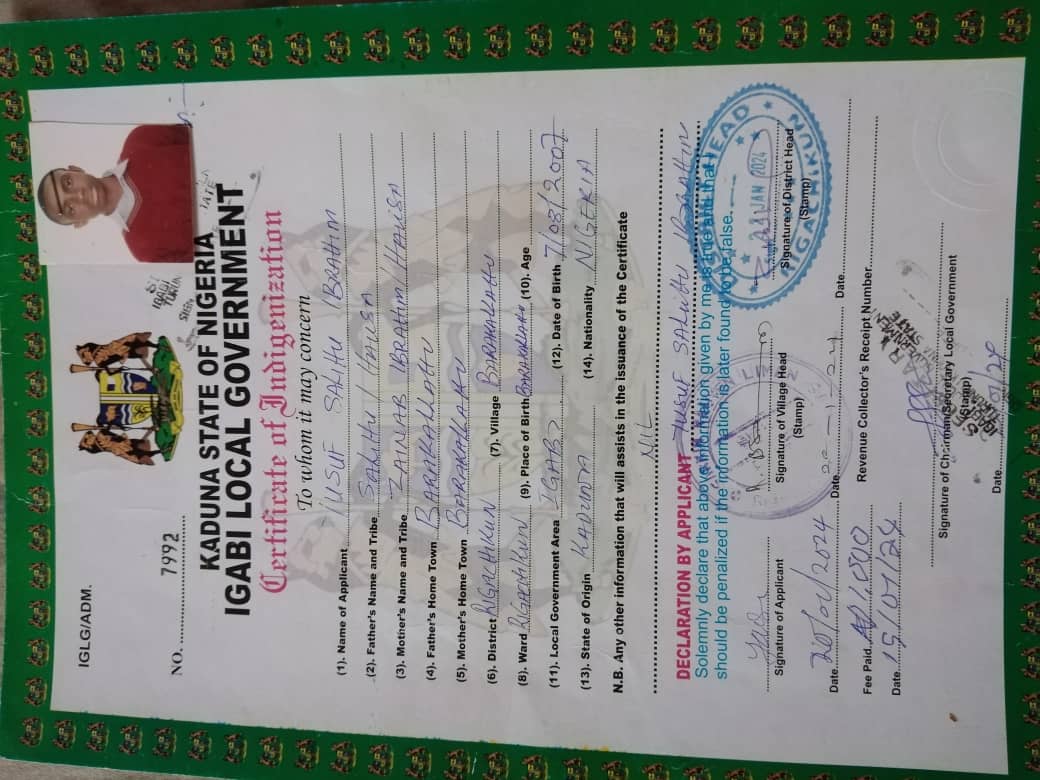 IGLG/ADM.
NO. 7992
KADUNA STATE OF NIGERIA
IGABI LOCAL GOVERNMENT
Certificate of Indigenization
To whom it may concern
(1). Name of Applicant YUSUF SALIHU IBRAHIM
(2). Father's Name and Tribe SALIHU / HAUSA
(3). Mother's Name and Tribe ZAINAB IBRAHIM / HAUSA
(4). Father's Home Town BARAKALLAHU
(5). Mother's Home Town BARAKALLAHU
(6). District RIGACHIKUN (7). Village BARAKALLAHU
(8). Ward RIGACHIKUN (9). Place of Birth BARAKALLAHU (10). Age
(11). Local Government Area IGABI (12). Date of Birth 7/08/2007
(13). State of Origin KADUNA (14). Nationality NIGERIA
N.B. Any other information that will assists in the issuance of the Certificate
NIL
DECLARATION BY APPLICANT YUSUF SALIHU IBRAHIM
Solemnly declare that above information given by me is true and that I
should be penalized if the information is later found to be false.
Signature of Applicant
Signature of Village Head
(Stamp)
20 JAN 2024
RIGACHIKUN
Signature of District Head
(Stamp)
Date 20/01/2024 Date 20-1-24 Date
Fee Paid Revenue Collector's Receipt Number
Date 15/01/24
Signature of Chairman/Secretary Local Government
(Stamp)
Date